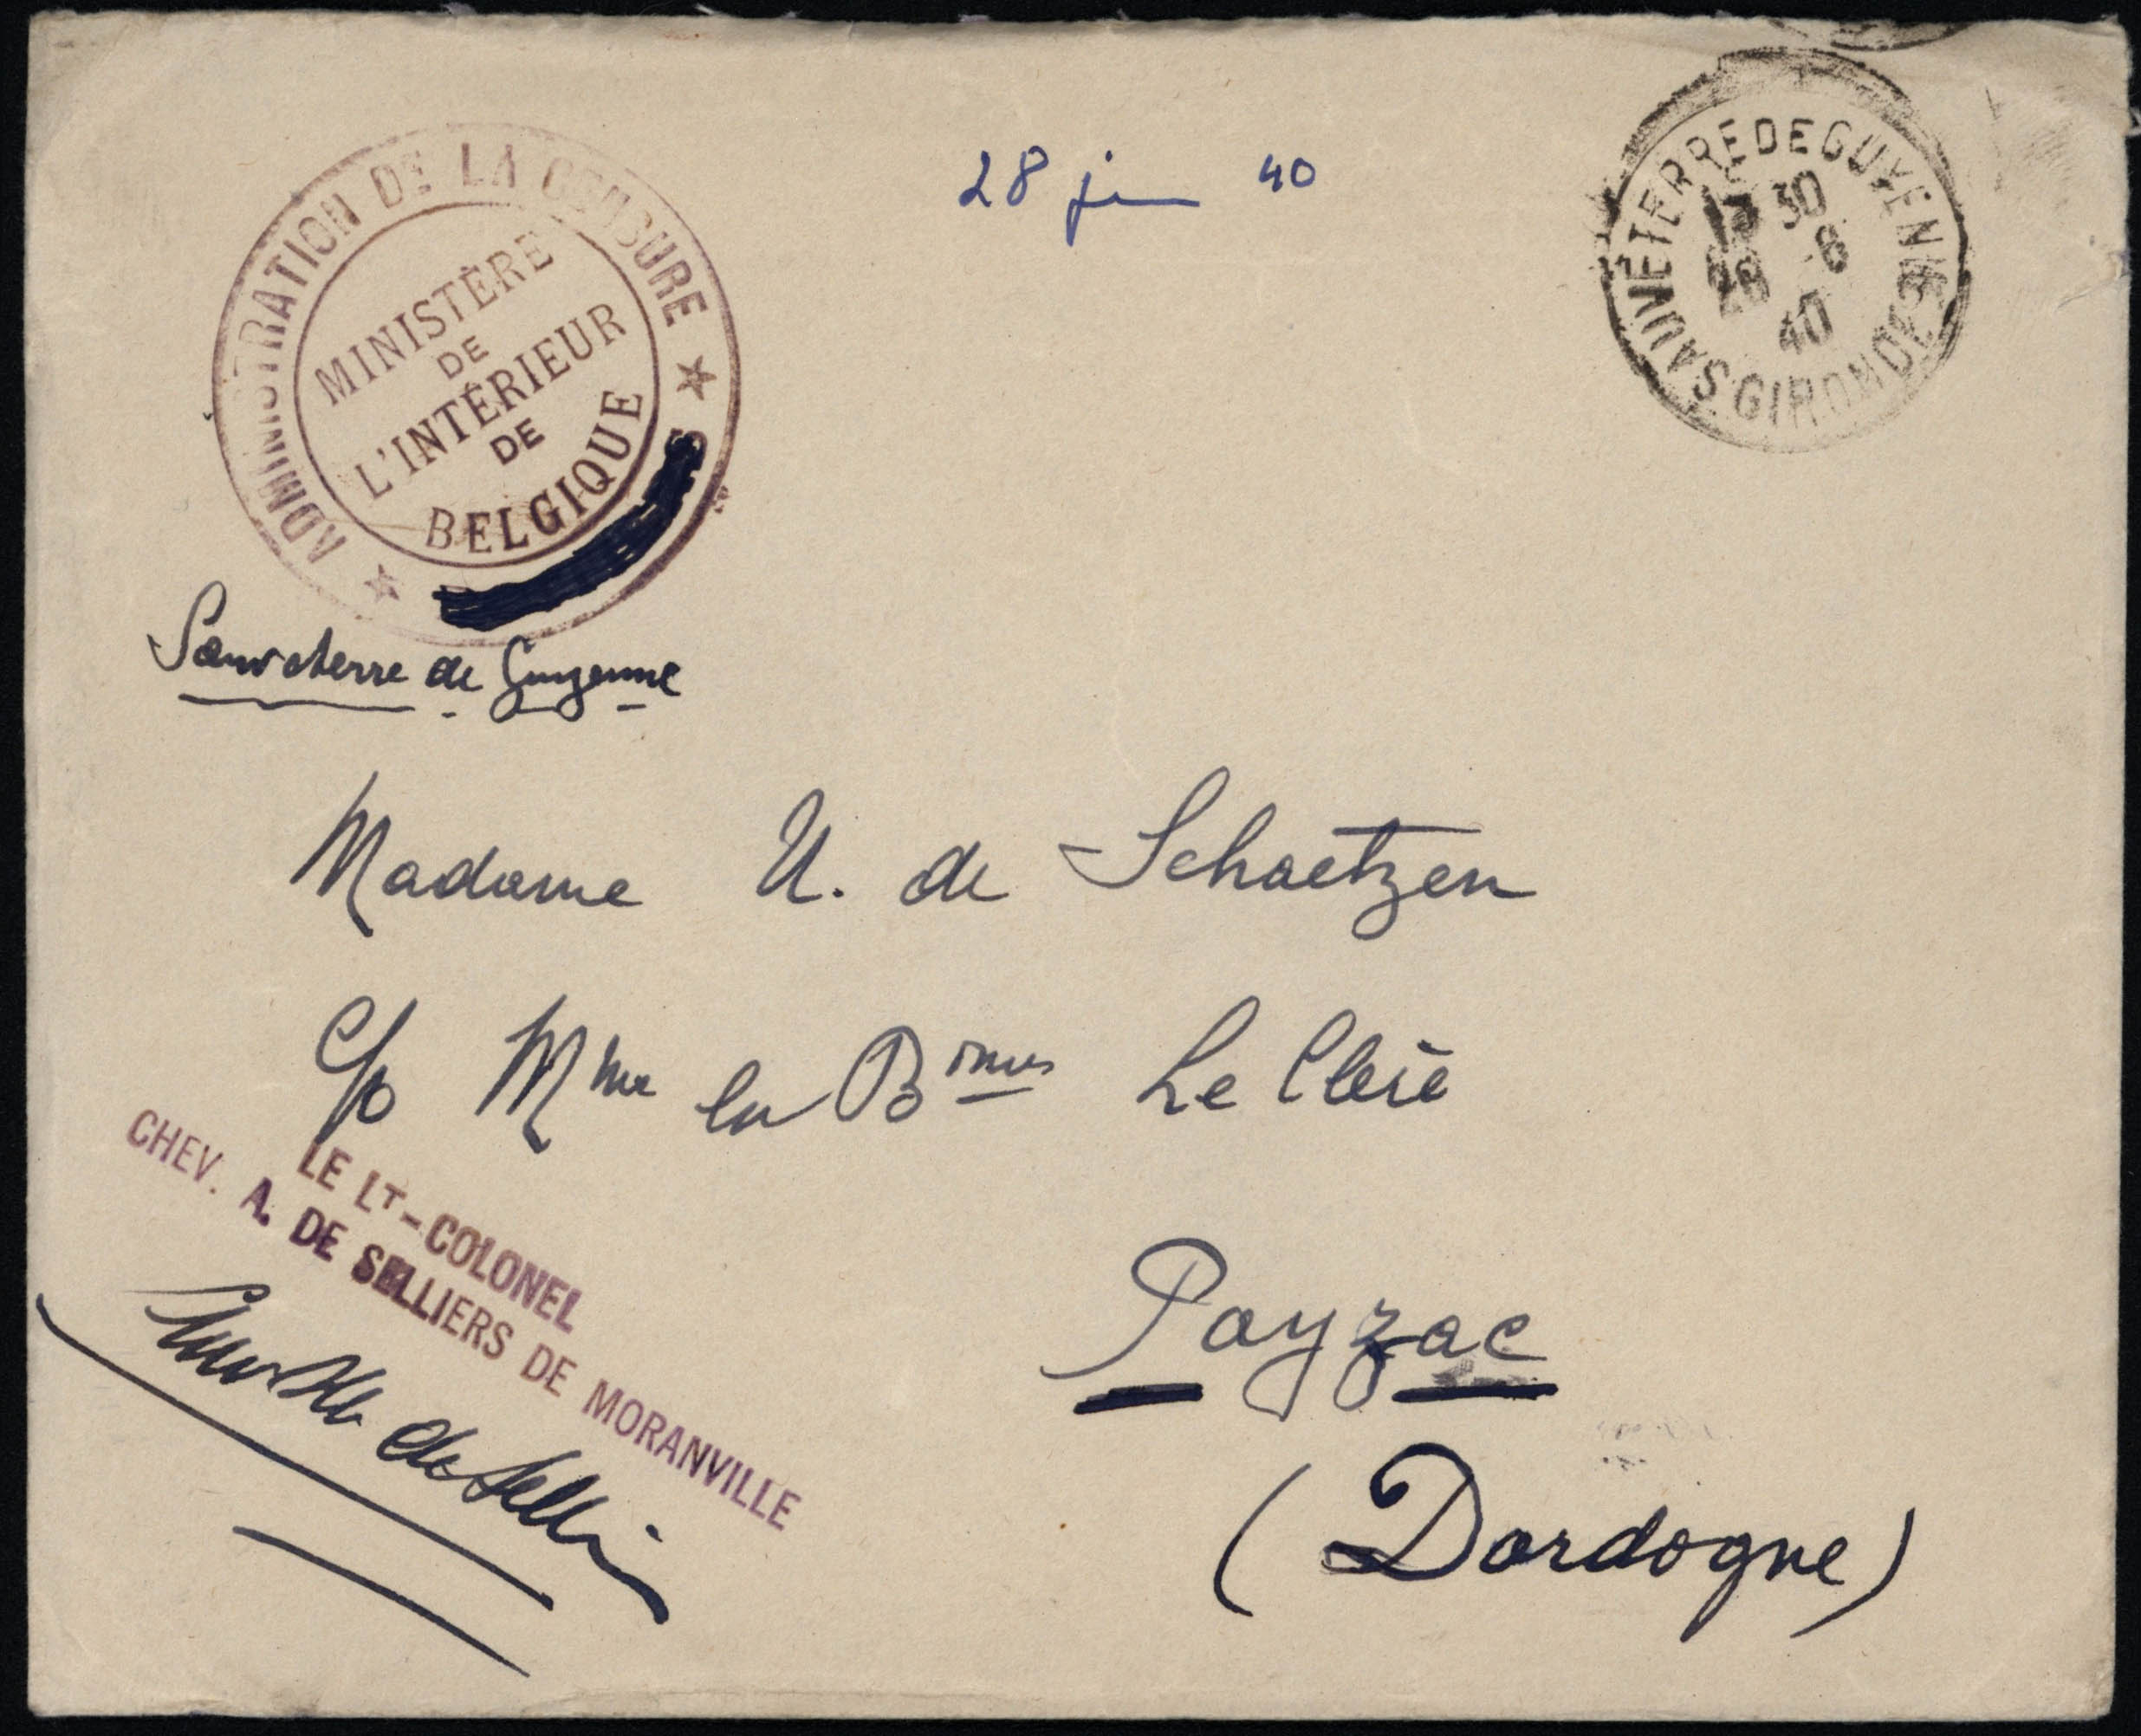 ADMINISTRATION DE LA CENSURE
MINISTÈRE
DE
L'INTÉRIEUR
DE
BELGIQUE
28 juin 40
SAUVETERRE DE GUYENNE
30
28 6
40
GIRONDE
Sauveterre de Guyenne
Madame U. de Schaetzen
C/o Mme la Bonne
Payzac
(Dordogne)
LE LT-COLONEL
CHEV. A. DE SELLIERS DE MORANVILLE
de Selliers